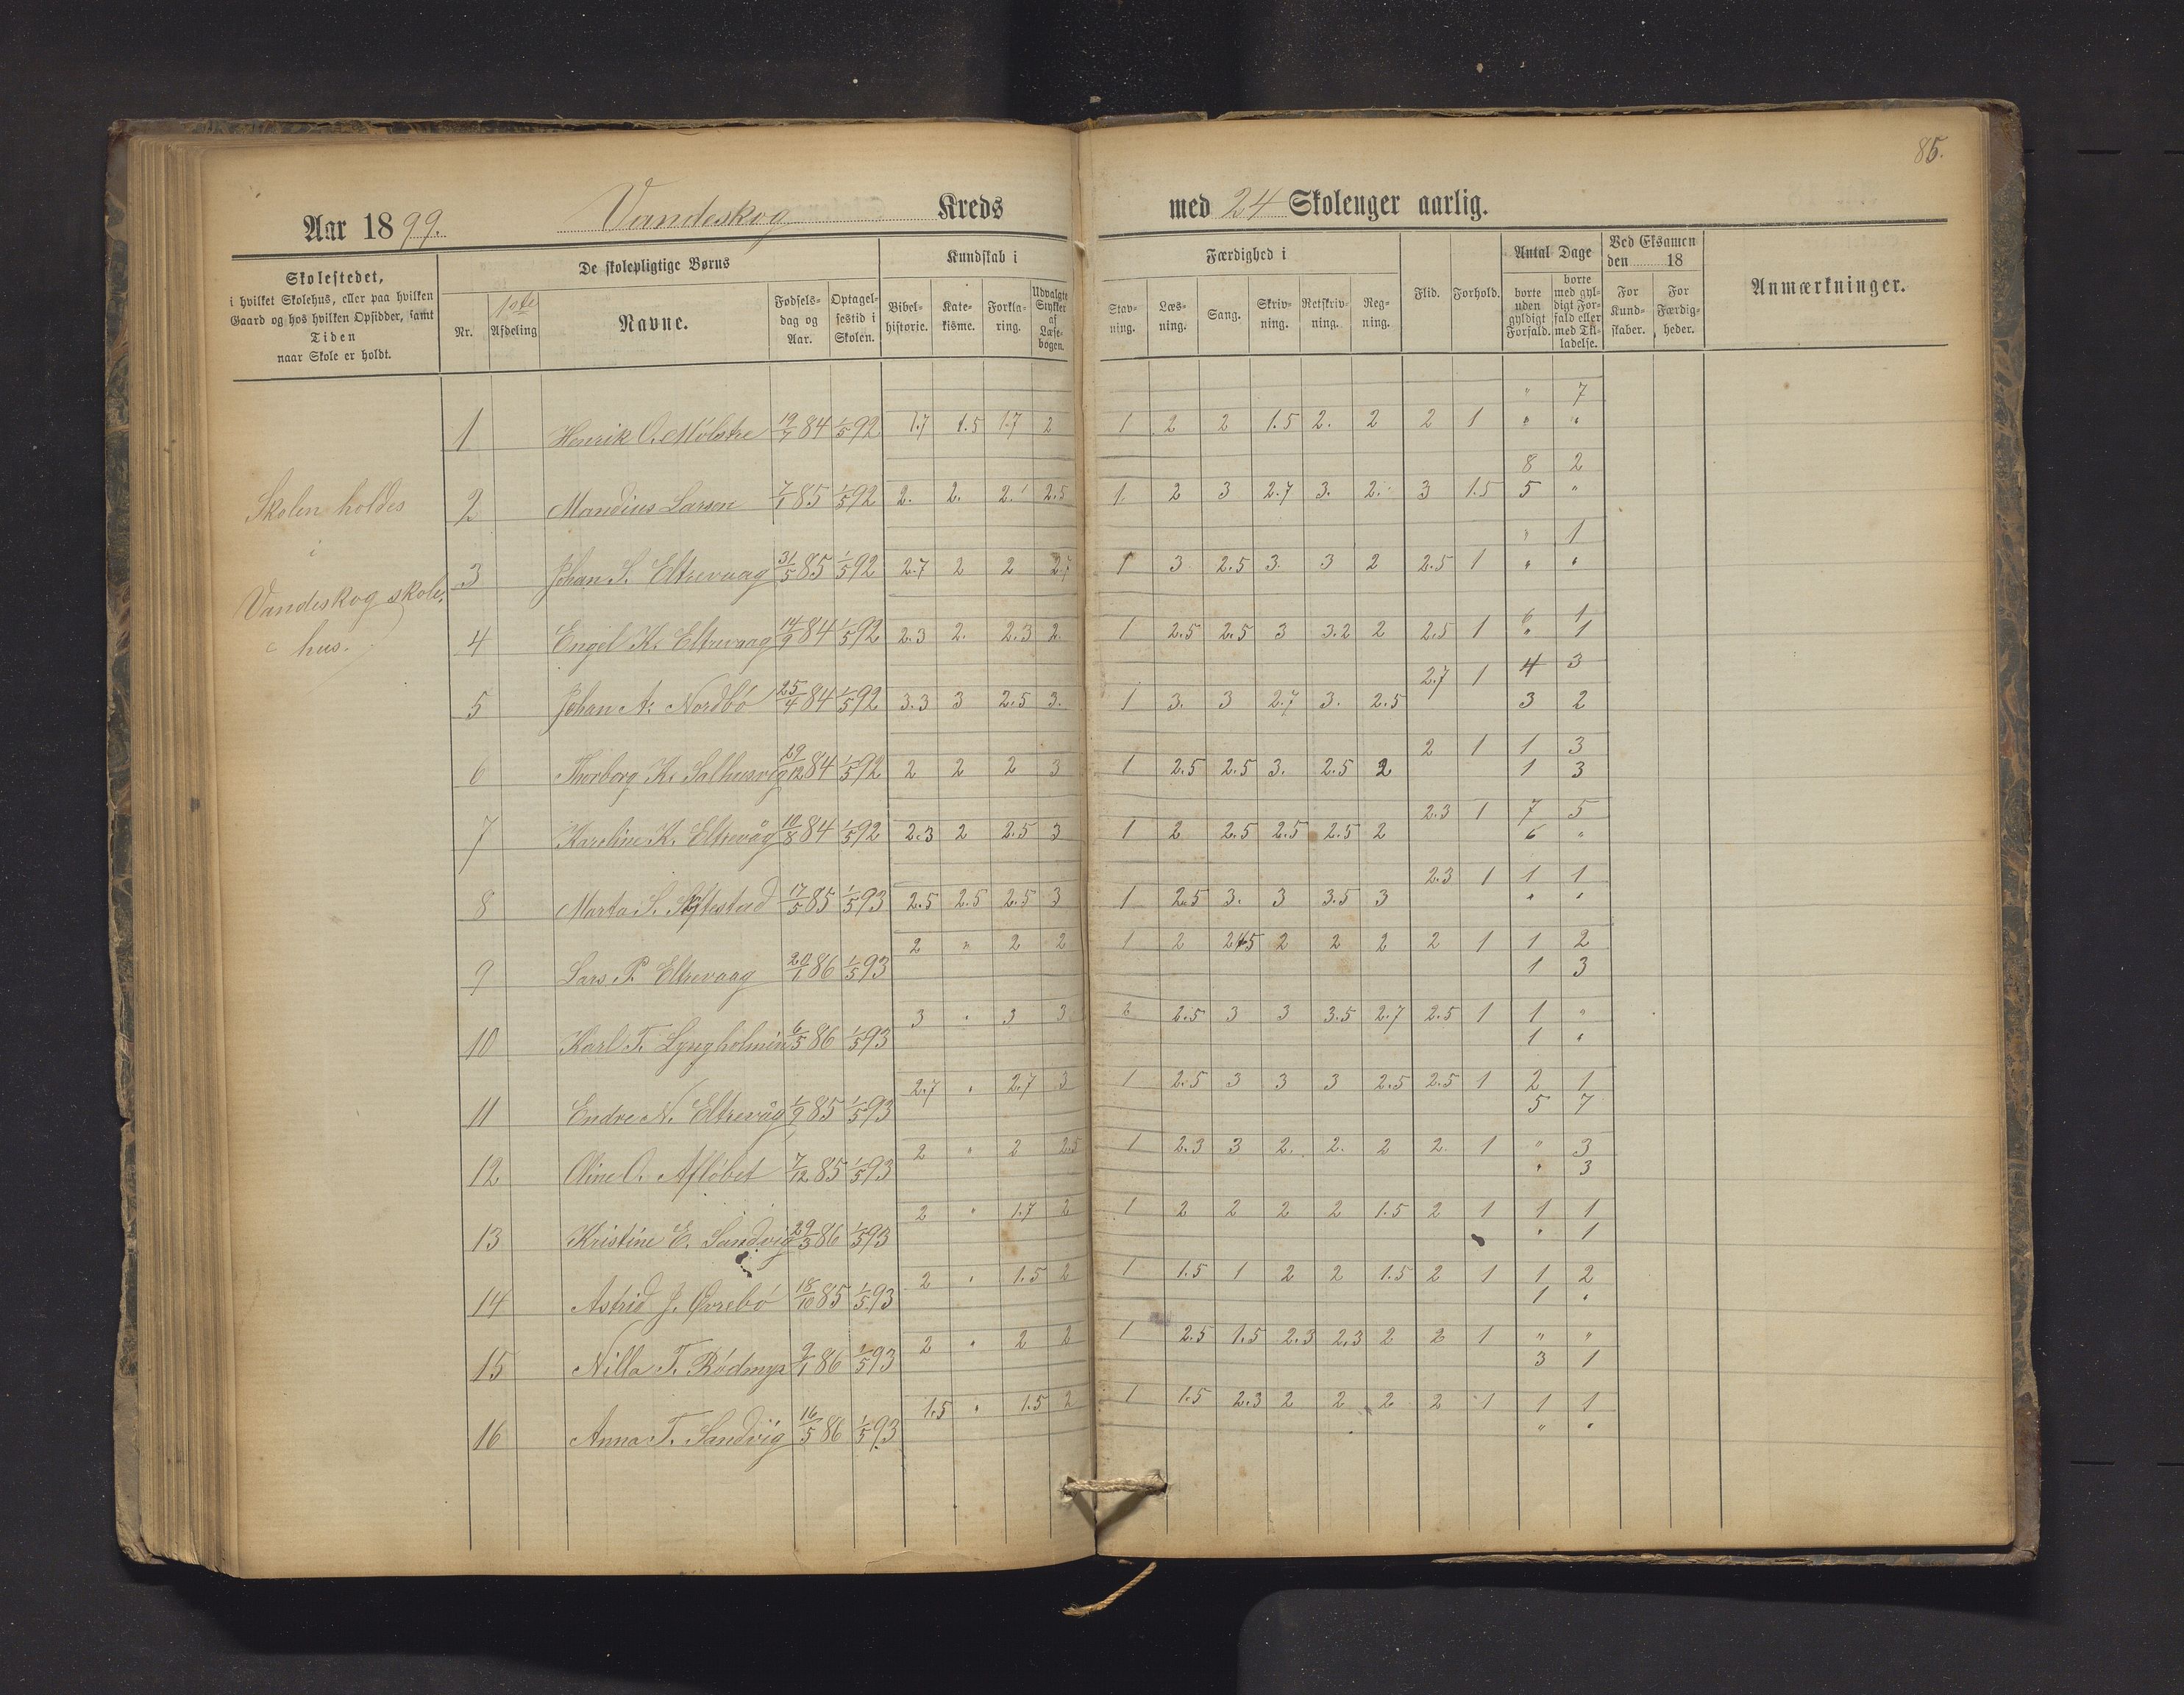 85.
Aar 1899. Vandeskog Kreds med 24 Skolenger aarlig.
Skolestedet,
i hvilket Skolehus, eller paa hvilken
Gaard og hos hvilken Opsidder, samt
Tiden
naar Skole er holdt.
De skolepligtige Børns
Nr. 1ste Afdeling Navne. Fødselsdag og Aar. Optagelsestid i Skolen.
Kundskab i
Bibelhistorie. Katekisme. Forklaring. Udvalgte Stykker af Læsebogen.
Færdighed i
Stavning. Læsning. Sang. Skrivning. Retskrivning. Regning.
Flid. Forhold.
Antal Dage
borte uden gyldigt Forfald. borte med gyldigt Forfald eller med Tilladelse.
Ved Eksamen den 18
For Kundskaber. For Færdigheder.
Anmærkninger.
Skolen holdes
i
Vandeskog skole
hus.
" 7
1 Henrik O. Mølstre 19/7 84 1/5 92 1.7 1.5 1.7 2 1 2 2 1.5 2. 2 2 1 " "
8 2
2 Mandius Larsen 7/1 85 1/5 92 2. 2. 2. 2.5 1. 2 3 2.7 3. 2. 3 1.5 5 "
" 1
3 Johan S. Eltrevaag 31/5 85 1/5 92 2.7 2 2 2.7 1 3 2.5 3. 3 2 2.5 1 " "
6 1
4 Engel K. Eltrevaag 14/9 84 1/5 92 2.3 2. 2.3 2. 1 2.5 2.5 3 3.2 2 2.5 1 " 1
2.7 1 4 3
5 Johan A. Nordbó 25/4 84 1/5 92 3.3 3 2.5 3. 1 3. 3 2.7 3. 2.5 3 2
2 1 1 3
6 Thorborg K. Salhusvig 29/12 84 1/5 92 2 2 2 3 1 2.5 2.5 3. 2.5 2 1 3
2.3 1 7 5
7 Karoline K. Eltrevåg 10/8 84 1/5 92 2.3 2 2.5 3 1 2 2.5 2.5 2.5 2 6 "
2.3 1 1 1
8 Marta S. 17/5 85 1/5 93 2.5 2.5 2.5 3 1 2.5 3. 3 3.5 3 " "
2 " 2 2 1 2 2 2 2 2 1 1 2
9 Lars P. Eltrevaag 20/1 86 1/5 93 1 3
3 " 3 3 2 2.5 3 3 3.5 2.7 2.5 1 1 "
10 Karl T. Lyngholmen 6/5 86 1/5 93 1 "
2.7 " 2.7 3 1 2.5 3 3 3 2.5 2.5 1 2 1
11 Endre N. Eltrevåg 1/9 85 1/5 93 5 7
2 " 2 2.5 1 2.3 3 2. 2. 2 2. 1 " 3
12 Oline O. Afløbet 7/12 85 1/5 93 " 3
2 " 1.7 2 1 2 2 2 2 1.5 2 1 1 1
13 Kristine E. Sandvig 29/3 86 1/5 93 " 1
2 " 1.5 2 1 1.5 1 2 2 1.5 2 1 1 2
14 Astrid J. Øvrebó 18/10 85 1/5 93 1 "
2 " 2 2 1 2.5 1.5 2.3 2.3 2 2 1 " "
15 Nilla T. Rødmyr 9/1 86 1/5 93 3 1
1.5 " 1.5 2 1 1.5 2.3 2 2 2 2 1 1 1
16 Anna T. Sandvig 16/5 86 1/5 93 " "